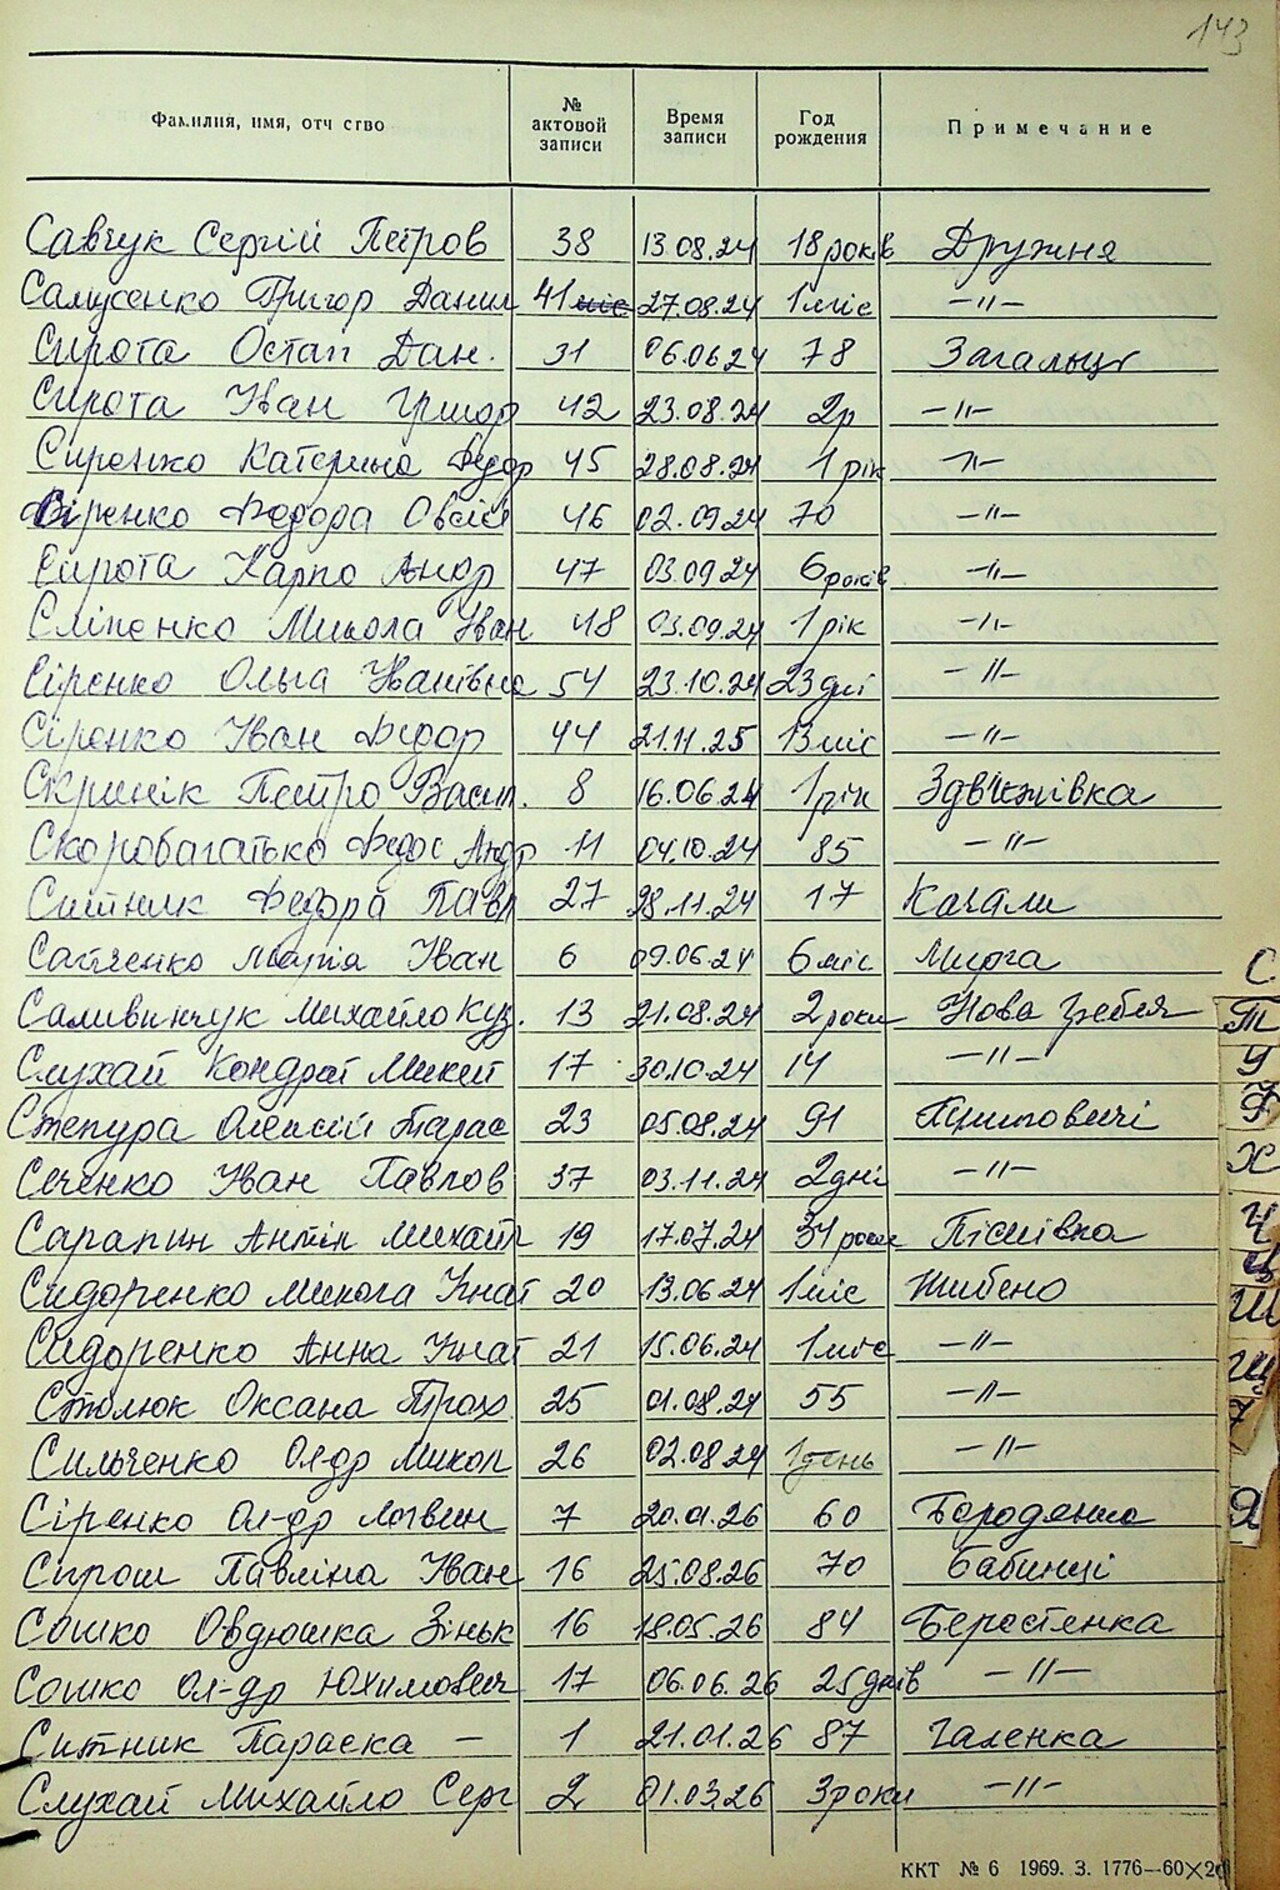 143
Фамилия, имя, отчество № актовой записи Время записи Год рождения Примечание
Савчук Сергій Петров 38 13.08.24 18 років Дружня
Самусенко Григор Данил 41 27.08.24 1 міс —"—
Сирота Остап Дан. 31 06.06.24 78 Загальці
Сирота Іван Григор 42 23.08.24 2р —"—
Сиренко Катерина Федор 45 28.08.24 1 рік —"—
Сіренко Федора Овсій 46 02.09.24 70 —"—
Сирота Карпо Андр 47 03.09.24 6 років —"—
Сліпенко Микола Іван 48 03.09.24 1 рік —"—
Сіренко Ольга Іванівна 54 23.10.24 23 дні —"—
Сіренко Іван Федор 44 21.11.25 13 міс —"—
Скринік Петро Васил. 8 16.06.24 1 рік Здвижівка
Скоробагатько Федос Андр 11 04.10.24 85 —"—
Ситник Федора Павл 27 28.11.24 17 Качали
Сатченко Марія Іван 6 09.06.24 6 міс Мирча
Саливинчук Михайло Куз. 13 21.08.24 2 роки Нова Гребля
Слухай Кондрат Микит 17 30.10.24 14 —"—
Степура Олексій Тарас 23 05.08.24 91 Пилиповичі
Сеченко Іван Павлов 37 03.11.24 2 дні —"—
Сарапин Антін Михайл 19 17.07.24 34 роки Пісківка
Сидоренко Микола Ігнат 20 13.06.24 1 міс Шибено
Сидоренко Анна Ігнат 21 15.06.24 1 міс —"—
Столюк Оксана Прох 25 01.08.24 55 —"—
Сильченко Ол-др Микол 26 02.08.24 1 день —"—
Сіренко Ол-др Логвин 7 20.01.26 60 Бородянка
Сирош Павліна Іван 16 25.08.26 70 Бабинці
Сошко Овдюшка Зіньк 16 18.05.26 84 Берестянка
Сошко Ол-др Юхимович 17 06.06.26 25 днів —"—
Ситник Параска — 1 21.01.26 87 Галенка
Слухай Михайло Серг 2 01.03.26 3 роки —"—
С
Т
У
Ф
Х
Ч
Ц
Ш
Щ
Я
ККТ № 6 1969. З. 1776—60×20